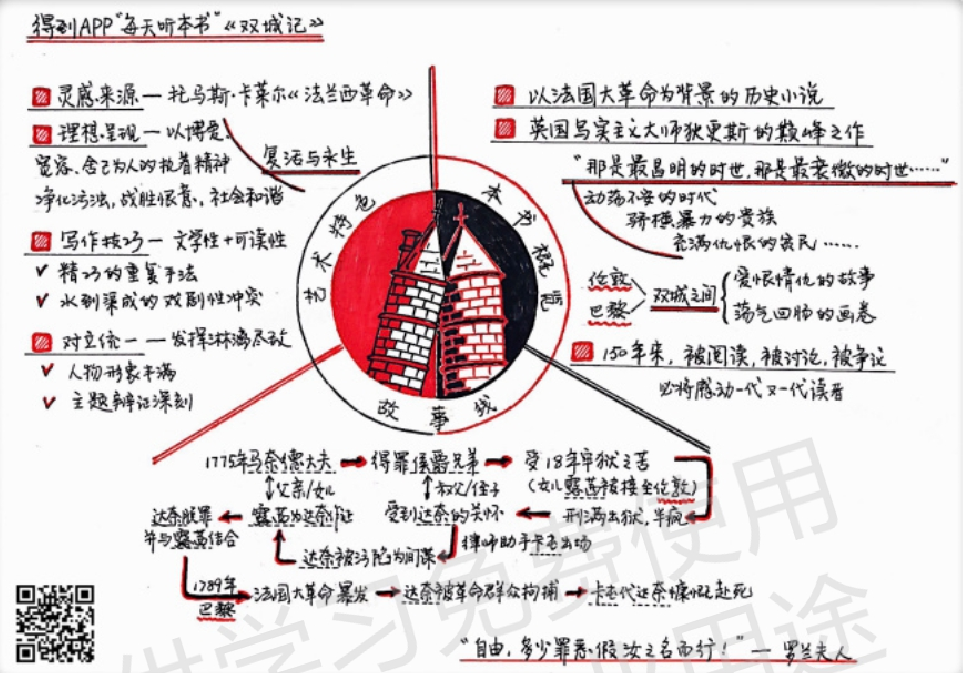 得到APP"每天听本书"《双城记》
灵感来源—托马斯·卡莱尔《法兰西革命》
理想呈现—以博爱、
宽容、舍己为人的执着精神
净化污浊,战胜恨意,社会和谐
复活与永生
写作技巧—文学性+可读性
✓ 精巧的重复手法
✓ 水到渠成的戏剧性冲突
对立统一—发挥淋漓尽致
✓ 人物形象丰满
✓ 主题辩证深刻
以法国大革命为背景的历史小说
英国写实主义大师狄更斯的巅峰之作
"那是最昌明的时世,那是最衰微的时世……"
动荡不安的时代
骄横暴力的贵族
充满仇恨的贫民……
伦敦
巴黎
双城之间
爱恨情仇的故事
荡气回肠的画卷
150年来,被阅读,被讨论,被争议
必将感动一代又一代读者
艺术特色
本书概览
故事线
1775年马奈德大夫→得罪侯爵兄弟→受18年牢狱之苦
(女儿露茜被接至伦敦)
↕父亲/女儿
↕叔父/侄子
达奈脱罪
并与露茜结合
←露茜为达奈作证
受到达奈的关怀←刑满出狱,半疯
达奈被污陷为间谍
律师助手卡屯出场
1789年
巴黎
法国大革命暴发→达奈被革命群众拘捕→卡屯代达奈慷慨赴死
"自由,多少罪恶假汝之名而行!"—罗兰夫人
供学习免费使用
业用途